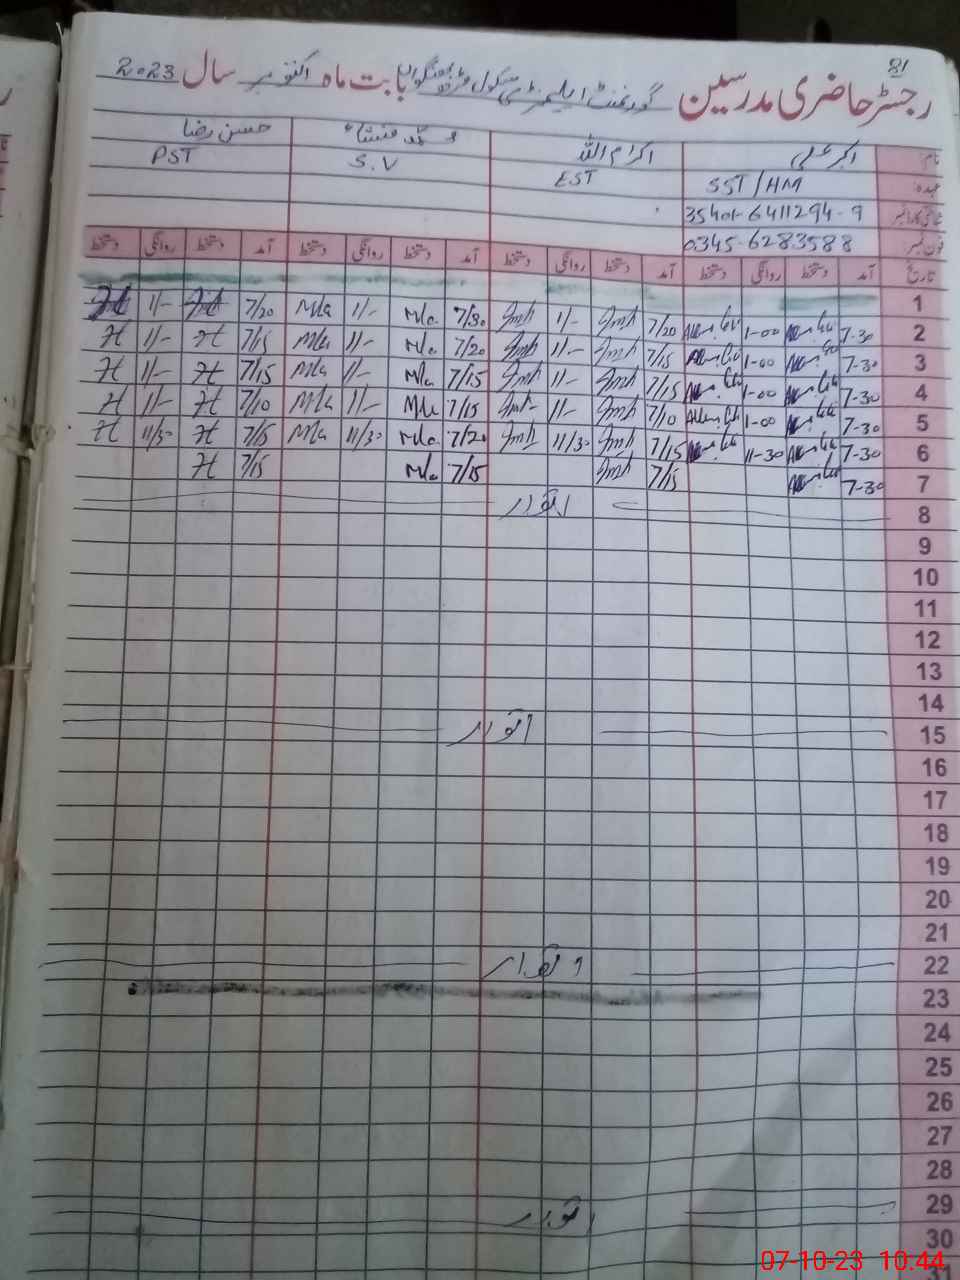 81
رجسٹر حاضری مدرسین گورنمنٹ ایلیمنٹری سکول بابت ماہ اکتوبر سال 2023
نام: اکبر علی اکرام اللہ محمد منشاء حسن رضا
عہدہ SST/HM EST S.V PST
شناختی کارڈ نمبر 35401-6411294-9
فون نمبر 0345-6283588
تاریخ آمد دستخط روانگی دستخط آمد دستخط روانگی دستخط آمد دستخط روانگی دستخط آمد دستخط روانگی دستخط
1
2 7-30 1-00 7/20 1/- 7/30 M/a 1/- M/a 7/20 H 1/- H
3 7-30 1-00 7/15 1/- 7/20 M/a 1/- M/a 7/15 H 1/- H
4 7-30 1-00 7/15 1/- 7/15 M/a 1/- M/a 7/15 H 1/- H
5 7-30 1-00 7/10 1/- 7/15 M/a 1/- M/a 7/10 H 1/- H
6 7-30 11-30 7/15 11/30 7/20 M/a 11/30 M/a 7/15 H 11/30 H
7 7-30 7/15 7/15 M/a 7/15 H
8 اتوار
9
10
11
12
13
14
15 اتوار
16
17
18
19
20
21
22 اتوار
23
24
25
26
27
28
29 اتوار
30
31
07-10-23 10:44